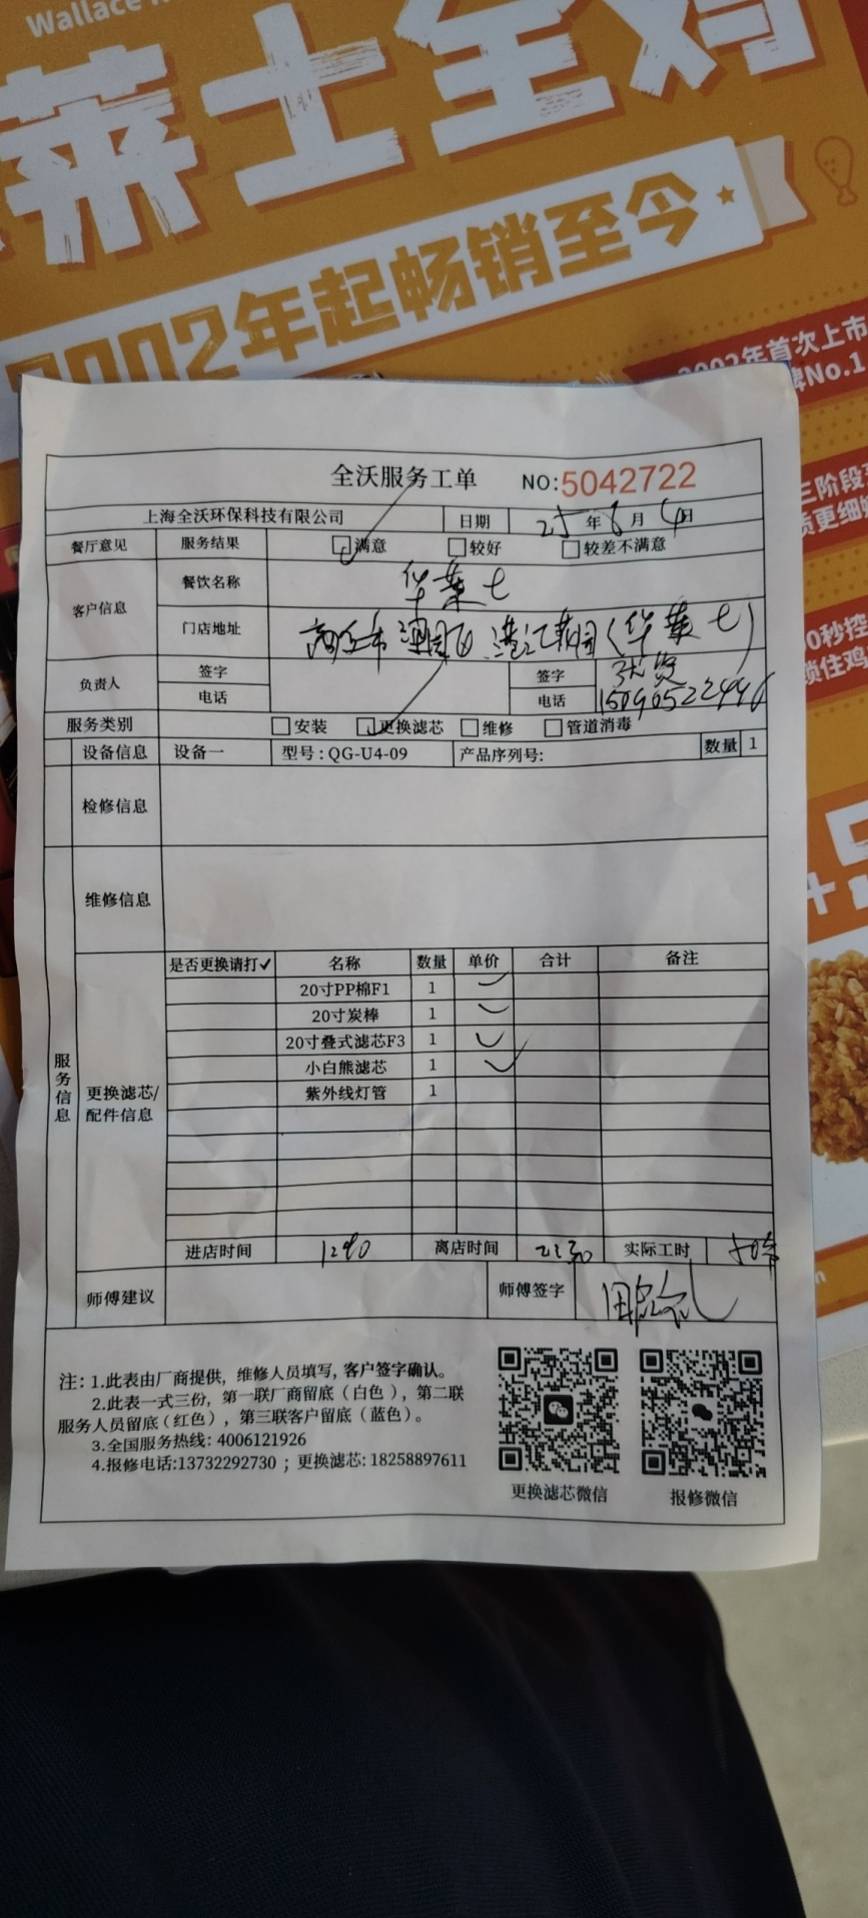 Wallace
莱士全鸡
2002年起畅销至今
2002年首次上市
牌No.1
三阶段
质更细
0秒控
锁住鸡
+5
全沃服务工单 NO:5042722
上海全沃环保科技有限公司 日期 25年6月4日
餐厅意见 服务结果 满意 较好 较差不满意
客户信息 餐饮名称 华莱士
门店地址 (华莱士)
负责人 签字 签字
电话 电话
服务类别 安装 更换滤芯 维修 管道消毒
设备信息 设备一 型号:QG-U4-09 产品序列号: 数量 1
检修信息
维修信息
服务信息
更换滤芯/
配件信息
是否更换请打✓ 名称 数量 单价 合计 备注
20寸PP棉F1 1
20寸炭棒 1
20寸叠式滤芯F3 1
小白熊滤芯 1
紫外线灯管 1
进店时间 离店时间 实际工时
师傅建议 师傅签字
注:1.此表由厂商提供,维修人员填写,客户签字确认。
2.此表一式三份,第一联厂商留底(白色),第二联
服务人员留底(红色),第三联客户留底(蓝色)。
3.全国服务热线:4006121926
4.报修电话:13732292730;更换滤芯:18258897611
更换滤芯微信 报修微信